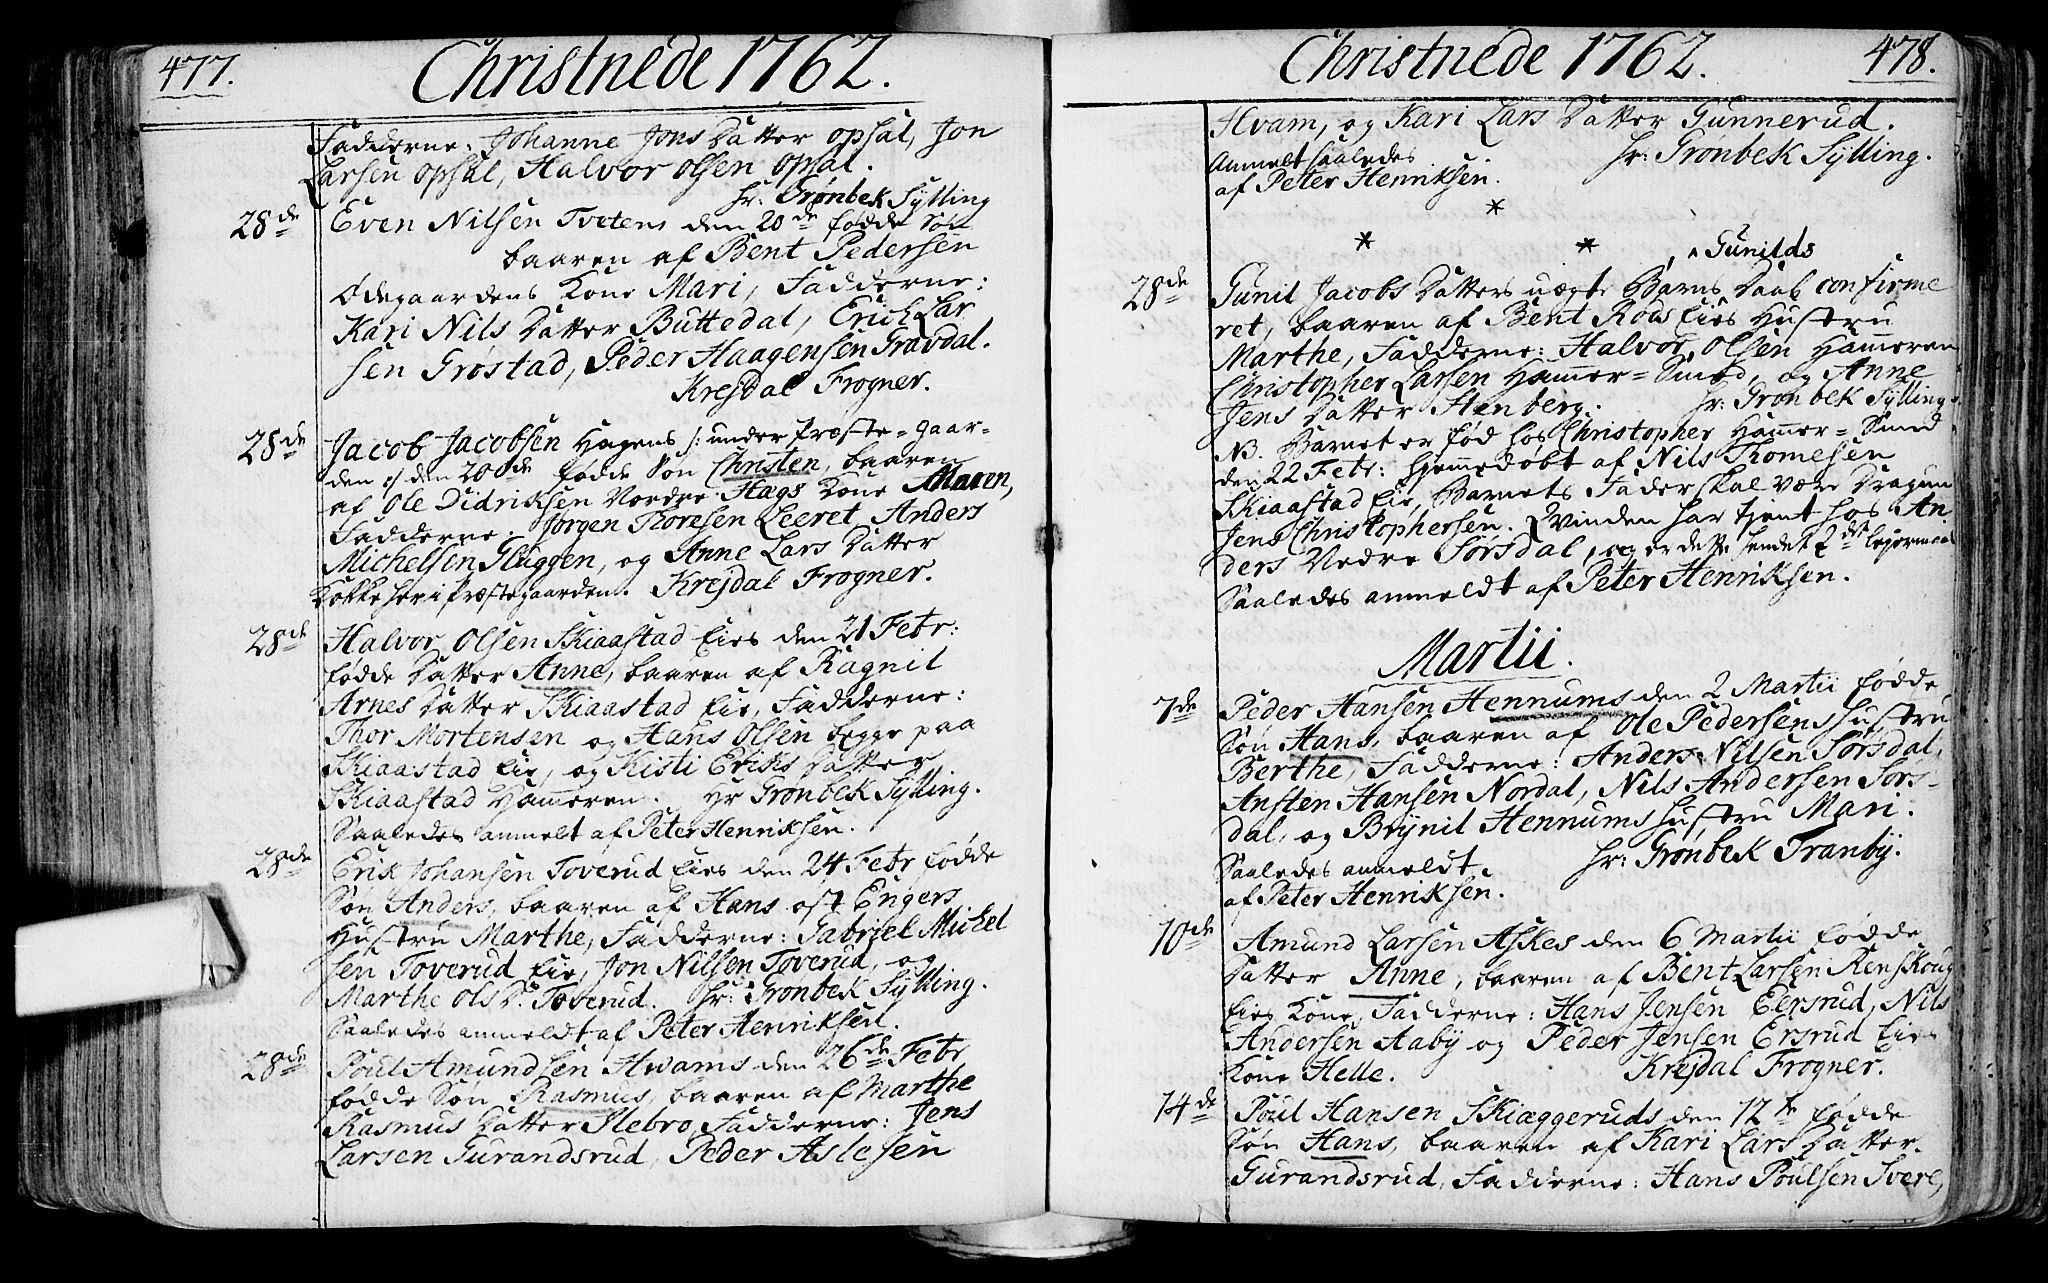 477.
Christnede 1762.
Fadderne: Johanne Jons Datter Opsal, Jon
Larsen Opsal, Halvor Olsen Opsal.
Hr: Grønbek Sylling
28de Even Nilsen Tvetens den 20de fødde Søn
baaren af Bent Pedersen
Ødegaardens Kone Mari, Fadderne:
Kari Nils Datter Buttedal, Erich Lar
sen Grøstad, Peder Haagensen Gravdal.
Krejdal Frogner.
28de Jacob Jacobsen Hagens /: under Præste-Gaar-
den :/ den 20de fødde Søn Christen, baaren
af Ole Didriksen Nordre Hags Kone Maren,
Fadderne: Jørgen Thoresen Leeret, Anders
Michelsen Gluggen, og Anne Lars Datter
Kokke her i Præstegaarden. Krejdal Frogner.
28de Halvor Olsen Skiaastad Eies den 21 Febr:
fødde Datter Anne, baaren af Ragnil
Arnes Datter Skiaastad Eie, Fadderne:
Thor Mortensen og Hans Olsen begge paa
Skiaastad Eie, og Kisti Eriks Datter
Skiaastad Hameren. Hr Grønbek Sylling.
Saaledes anmelt af Peter Henriksen.
28de Erik Johansen Toverud Eies den 24 Febr fødde
Søn Anders, baaren af Hans øst Engers
Hustru Marthe, Fadderne: Gabriel Michel
sen Toverud Eie, Jon Nilsen Toverud, og
Marthe Ols Dr. Toverud. Hr: Grønbek Sylling.
Saaledes anmeldt af Peter Henriksen.
28de Poul Amundsen Hvams den 26de Febr
fødde Søn Rasmus, baaren af Marthe
Rasmus Datter Slebro, Fadderne: Jens
Larsen Gurandsrud, Peder Aslesen
Christnede 1762.
478.
Hvam, og Kari Lars Datter Gunnerud.
Anmelt saaledes Hr: Grønbek Sylling.
af Peter Henriksen.
*
* *
Gunilds
28de Gunil Jacobs Datters uægte Barns Daab confirme
ret, baaren af Bent Røds Eies Hustru
Marthe, Fadderne: Halvor Olsen Hameren
Christopher Larsen Hamer=Smed, og Anne
Jens Datter Stenberg. Hr: Grønbek Sylling.
NB. Barnet er fød hos Christopher Hamer=Smed
den 22 Febr: hjemmedøbt af Nils Thomesen
Skiaastad Eie, Barnets Fader skal være Dragun
Jens Christophersen. Qvinden har tjent hos An
ders Nedre Sørsdal, og er dette hendes 2det lejermaal
Saaledes anmeldt af Peter Henriksen.
Martii.
7de Peder Hansen Hennums den 2 Martii fødde
Søn Hans, baaren af Ole Pedersens Hustru
Berthe, Fadderne: Anders Nilsen Sørsdal,
Ansten Hansen Nordal, Nils Andersen Sørs-
dal, og Brynil Hennums Hustru Mari.
Saaledes anmeldt Hr: Grønbek Tranby.
af Peter Henriksen.
10de Amund Larsen Askes den 6 Martii fødde
Datter Anne, baaren af Bent Larsen Renskoug
Eies Kone, Fadderne: Hans Jensen Eersrud, Nils
Andersen Aaby og Peder Jensen Ersrud Eies
Kone Helle. Krejdal Frogner.
14de Poul Hansen Skiæggeruds den 12te fødde
Søn Hans, baaren af Kari Lars Datter
Gurandsrud, Fadderne: Hans Poulsen Svere,